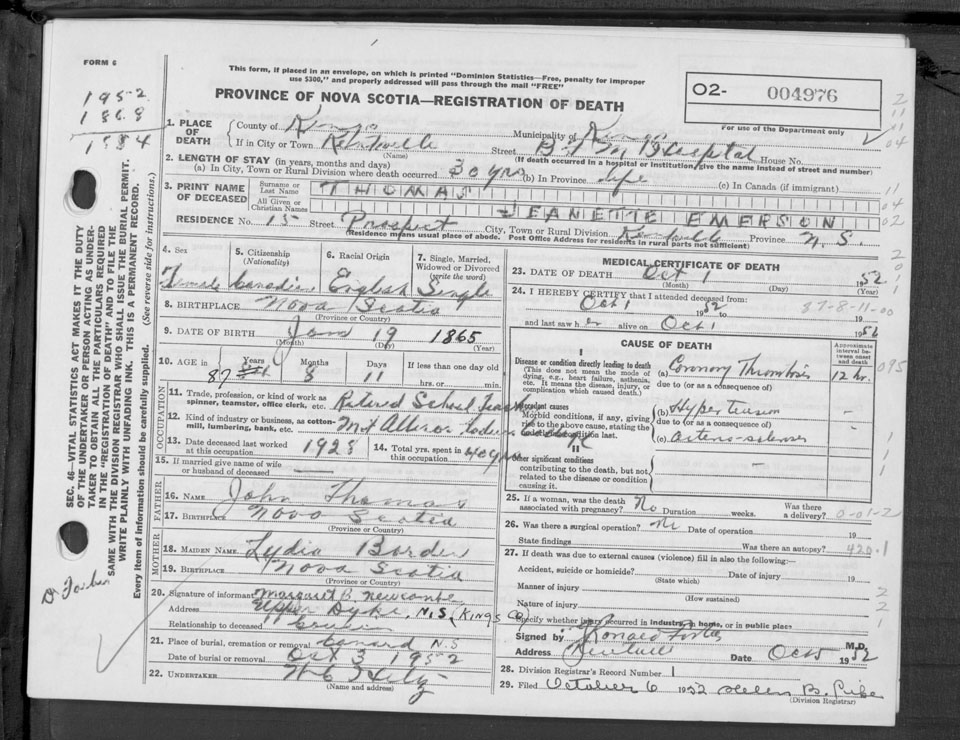 FORM 6
1952
1868
1884
This form, if placed in an envelope, on which is printed "Dominion Statistics—Free, penalty for improper
use $300," and properly addressed will pass through the mail "FREE"
PROVINCE OF NOVA SCOTIA—REGISTRATION OF DEATH
O2- 004976
For use of the Department only
1. PLACE OF DEATH
County of Kings Municipality of Kings
If in City or Town Kentville Street Hospital House No.
(Name) (If death occurred in a hospital or Institution, give the name instead of street and number)
2. LENGTH OF STAY (in years, months and days)
(a) In City, Town or Rural Division where death occurred 30 yrs (b) In Province life (c) In Canada (if immigrant)
3. PRINT NAME OF DECEASED
Surname or Last Name THOMAS
All Given or Christian Names JEANETTE EMERSON
RESIDENCE No. 15 Street Prospect City, Town or Rural Division Kentville Province N.S.
(Residence means usual place of abode. Post Office Address for residents in rural parts not sufficient)
4. Sex 5. Citizenship (Nationality) 6. Racial Origin 7. Single, Married, Widowed or Divorced (write the word)
Female Canadian English Single
8. BIRTHPLACE Nova Scotia
(Province or Country)
9. DATE OF BIRTH Jan 19 1865
(Month) (Day) (Year)
10. AGE in Years Months Days If less than one day old
87 8 11 hrs. or min.
OCCUPATION
11. Trade, profession, or kind of work as spinner, teamster, office clerk, etc. Retired School Teacher
12. Kind of industry or business, as cotton-mill, lumbering, bank, etc. Mt Allison Ladies College
13. Date deceased last worked at this occupation 1928 14. Total yrs. spent in this occupation 40 yrs
15. If married give name of wife or husband of deceased
FATHER
16. NAME John Thomas
17. BIRTHPLACE Nova Scotia
(Province or Country)
MOTHER
18. MAIDEN NAME Lydia Borden
19. BIRTHPLACE Nova Scotia
(Province or Country)
20. Signature of informant Margaret B. Newcombe
Address Upper Dyke, N.S. (Kings Co)
Relationship to deceased Cousin
21. Place of burial, cremation or removal Canard N.S
Date of burial or removal Oct 3 1952
22. UNDERTAKER
(Name and address)
MEDICAL CERTIFICATE OF DEATH
23. DATE OF DEATH Oct 1 1952
(Month) (Day) (Year)
24. I HEREBY CERTIFY that I attended deceased from
Oct 1 1952 19
87-8-11-00
and last saw h er alive on Oct 1 1952
CAUSE OF DEATH
Approximate interval between onset and death
I
Disease or condition directly leading to death
(This does not mean the mode of dying, e.g., heart failure, asthenia, etc. It means the disease, injury, or complication which caused death.)
(a) Coronary Thrombosis 12 hr.
due to (or as a consequence of)
Antecedent causes
Morbid conditions, if any, giving rise to the above cause, stating the underlying condition last.
(b) Hypertension —
due to (or as a consequence of)
(c) Arterio-sclerosis —
II
Other significant conditions
contributing to the death, but not related to the disease or condition causing it.
—
25. If a woman, was the death associated with pregnancy? No Duration weeks. Was there a delivery? 0-01-2
26. Was there a surgical operation? No Date of operation 19
State findings Was there an autopsy? 420.1
27. If death was due to external causes (violence) fill in also the following:
Accident, suicide or homicide? Date of injury 19
(State which)
Manner of injury
(How sustained)
Nature of injury
Specify whether injury occurred in industry, in home, or in public place
Signed by Ronald M.D.
Address Kentville Date Oct 5 1952
28. Division Registrar's Record Number 1
29. Filed October 6 1952 Helen B.
(Division Registrar)
SEC. 46—VITAL STATISTICS ACT MAKES IT THE DUTY
OF THE UNDERTAKER OR PERSON ACTING AS UNDER-
TAKER TO OBTAIN ALL THE PARTICULARS REQUIRED
IN THE "REGISTRATION OF DEATH" AND TO FILE THE
SAME WITH THE DIVISION REGISTRAR WHO SHALL ISSUE THE BURIAL PERMIT.
WRITE PLAINLY WITH UNFADING INK. THIS IS A PERMANENT RECORD.
Every item of information should be carefully supplied. (See reverse side for instructions.)